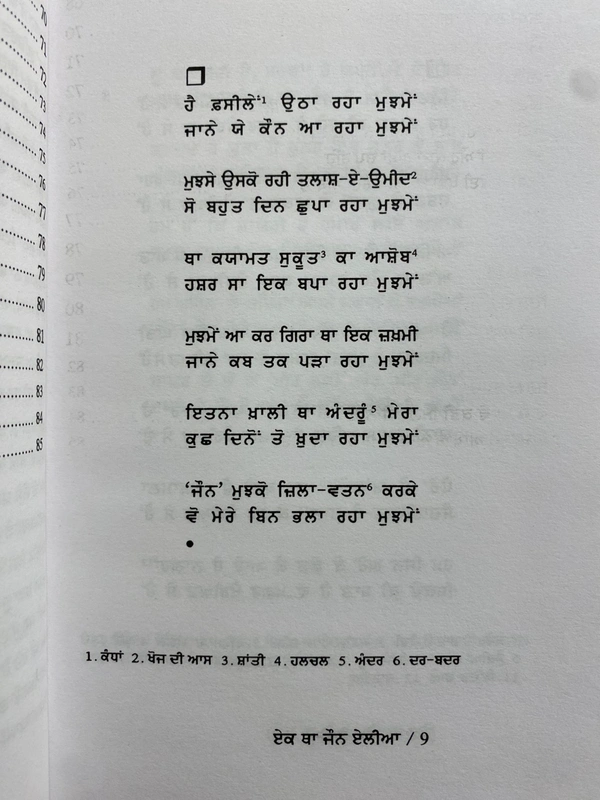 70
71
72
73
74
75
76
77
78
79
80
81
82
83
84
85
ਹੈ ਫ਼ਸੀਲੇਂ¹ ਉਠਾ ਰਹਾ ਮੁਝਮੇਂ
ਜਾਨੇ ਯੇ ਕੌਨ ਆ ਰਹਾ ਮੁਝਮੇਂ
ਮੁਝਸੇ ਉਸਕੋ ਰਹੀ ਤਲਾਸ਼-ਏ-ਉਮੀਦ²
ਸੋ ਬਹੁਤ ਦਿਨ ਛੁਪਾ ਰਹਾ ਮੁਝਮੇਂ
ਥਾ ਕਯਾਮਤ ਸੁਕੂਤ³ ਕਾ ਆਸ਼ੋਬ⁴
ਹਸ਼ਰ ਸਾ ਇਕ ਬਪਾ ਰਹਾ ਮੁਝਮੇਂ
ਮੁਝਮੇਂ ਆ ਕਰ ਗਿਰਾ ਥਾ ਇਕ ਜ਼ਖ਼ਮੀ
ਜਾਨੇ ਕਬ ਤਕ ਪੜਾ ਰਹਾ ਮੁਝਮੇਂ
ਇਤਨਾ ਖ਼ਾਲੀ ਥਾ ਅੰਦਰੂੰ⁵ ਮੇਰਾ
ਕੁਛ ਦਿਨੋਂ ਤੋ ਖ਼ੁਦਾ ਰਹਾ ਮੁਝਮੇਂ
‘ਜੌਨ’ ਮੁਝਕੋ ਜ਼ਿਲਾ-ਵਤਨ⁶ ਕਰਕੇ
ਵੋ ਮੇਰੇ ਬਿਨ ਭਲਾ ਰਹਾ ਮੁਝਮੇਂ
1.ਕੰਧਾਂ 2.ਖੋਜ ਦੀ ਆਸ 3.ਸ਼ਾਂਤੀ 4.ਹਲਚਲ 5.ਅੰਦਰ 6.ਦਰ-ਬਦਰ
ਏਕ ਥਾ ਜੌਨ ਏਲੀਆ / 9